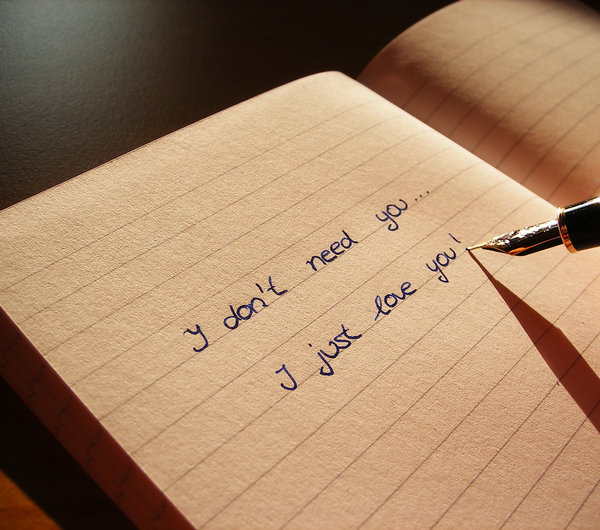 I don't need you...
I just love you!